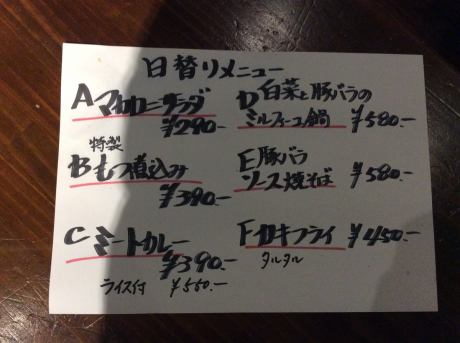 日替りメニュー
A マカロニサラダ
¥290-
特製
B もつ煮込み
¥390-
C ミートカレー
¥390-
ライス付 ¥550-
D 白菜と豚バラの
ミルフィーユ鍋 ¥580-
E 豚バラ
ソース焼そば ¥580-
F カキフライ ¥450-
タルタル